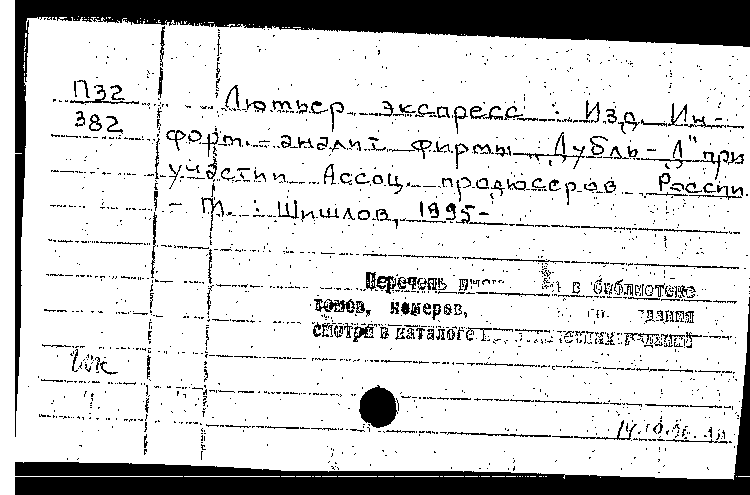 П32
382
Лютьер экспресс : Изд. Ин-
форм.-аналит фирмы „Дубль-Л" при
участии Ассоц. продюсеров России.
- М. : Шишлов, 1995-
Перечень в библиотеке
томов, номеров,
смотри в каталоге